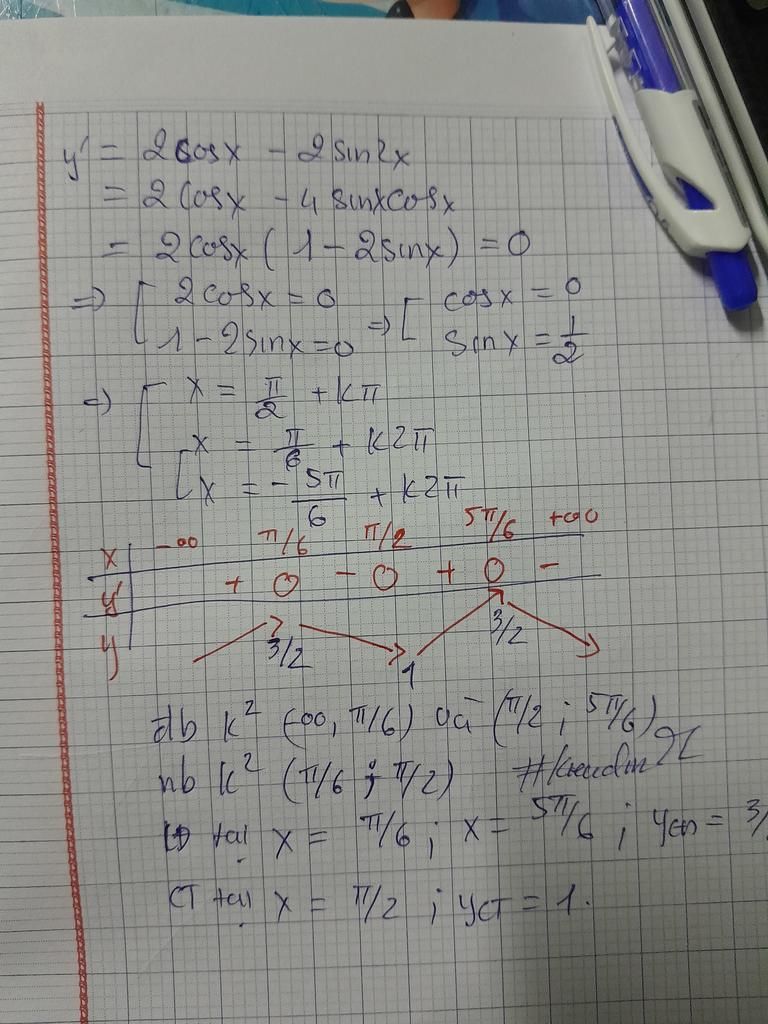 y' = 2cosx - 2sin2x
= 2cosx - 4sinxcosx
= 2cosx(1 - 2sinx) = 0
=> [ 2cosx = 0 => [ cosx = 0
1 - 2sinx = 0 sinx = 1/2
=> [ x = π/2 + kπ
x = π/6 + k2π
[ x = -5π/6 + k2π
x | -∞ π/6 π/2 5π/6 +∞
y' | + 0 - 0 + 0 -
y | 3/2 1 3/2
đb k² (-∞, π/6) và (π/2 ; 5π/6)
nb k² (π/6 ; π/2)
CĐ tại x = π/6 ; x = 5π/6 ; yCĐ = 3/
CT tại x = π/2 ; yCT = 1.